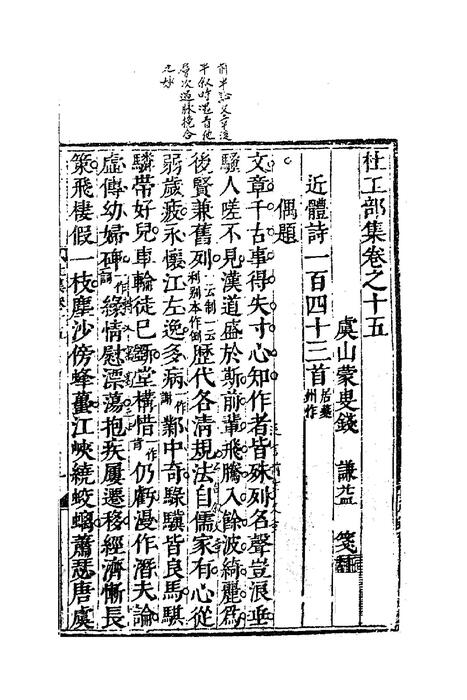 前半論文章後
半叙時還看他
層次過脉挽合
之妙
杜工部集卷之十五
虞山蒙叟錢 謙益 箋註
近體詩一百四十三首居夔州作
偶題
文章千古事得失寸心知作者皆殊列名聲豈浪垂
騷人嗟不見漢道盛於斯前輩飛騰入餘波綺麗爲
後賢兼舊列一云制一云利別本作例歷代各清規法自儒家有心從
弱歲疲永懷江左逸多病一作謝鄴中奇騄驥皆良馬騏
驎帶好兒車輪徒已斲堂構惜一作肯仍虧漫作潛夫論
虛傳幼婦碑一作詞緣情慰漂蕩抱疾屢遷移經濟慚長
策飛棲假一枝塵沙傍蜂蠆江峽繞蛟螭蕭瑟唐虞